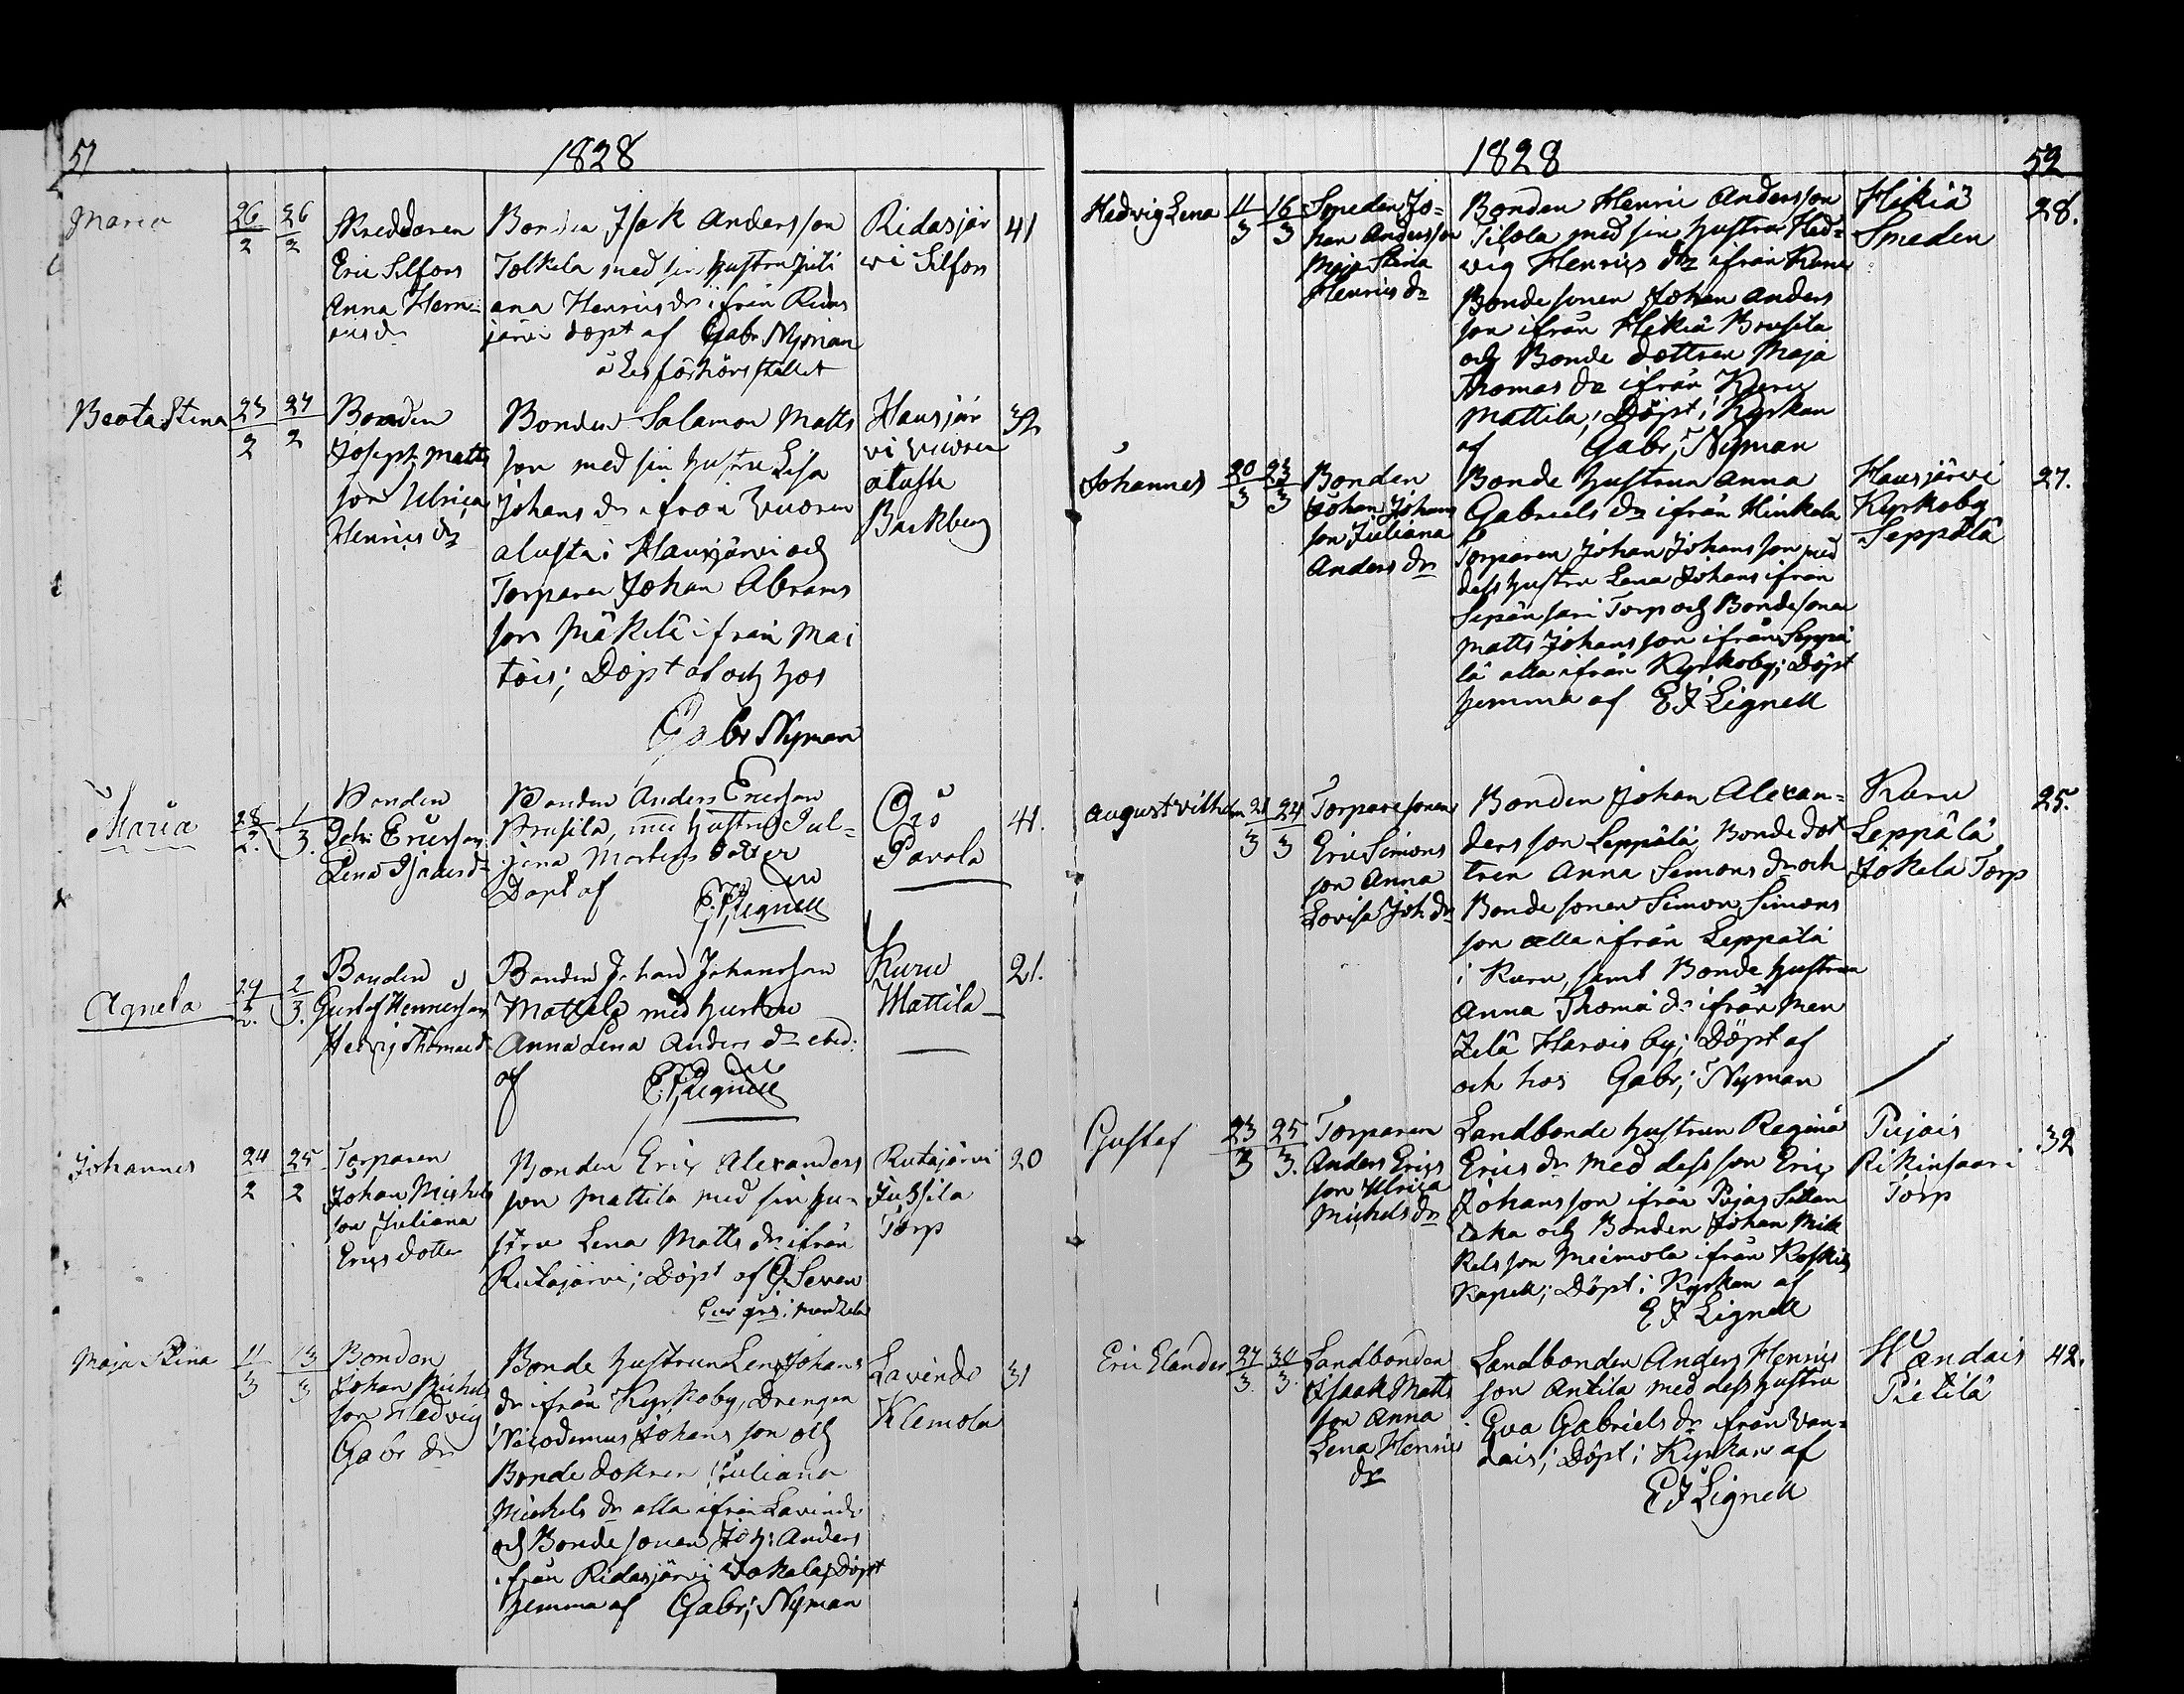 51
1828
Maria
26/2
26/2
Skreddaren
Eric Silfors
Anna Herm-
ans dr
Bonden Isak Andersson
Tolkila med sin hustru Juli
ana Henrics dr ifrån Ridas
järvi döpt af Gabr Nyman
å Läsförhörs stället
Ridasjär
vi Silfors
41
Beata Stina
23/2
27/2
Bonden
Joseph Matts
son Ulrica
Henrics dr
Bonden Salamon Matts
son med sin hustru Lisa
Johans dr ifrån Vuoren
alusta i Hausjärvi och
Torparen Johan Abrams
son Mäkelä ifrån Mai
tois; Döpt af och hos
Gabr Nyman
Hausjär
vi Vuoren
alusta
Backberg
32
Maria
28/2.
1/3.
Bonden
Joh: Ericsson
Lena Isacs dr
Bonden Anders Ericsson
Prusila, med hustru Jul-
jana Mortens dotter
Döpt af
E. J. Lignell
Ois
Pavola
41.
Agneta
29/2.
2/3.
Bonden
Gustaf Henricsson
Hedvig Thomæ dr
Bonden Johan Johansson
Mattila med hustru
Anna Lena Anders dr ibid:
af E. J. Lignell
Kuru
Mattila
21.
Johannes
24/2
25/2
Torparen
Johan Michels
son Juliana
Erics dotter
Bonden Eric Alexanders
son Mattila med sin hu-
stru Lena Matts dr ifrån
Rutajärvi; Döpt af G. Leven
Rutajärvi
Jussila
Torp
20
Maja Stina
11/3
13/3
Bonden
Johan Michels
son Hedvig
Gabr dr
Bonde hustrun Lena Johans
dr ifrån Kyrkoby, Drengen
Nicodemus Johans son och
Bonde dottren Juliana
Michels dr alla ifrån Lavindo
och Bonde sonen Joh: Anders
ifrån Ridasjärvi Jokela; Döpt
hemma af Gabr; Nyman
Lavindo
Klemola
31
1828
52
Hedvig Lena
11/3
16/3
Smeden Jo-
han Andersson
Maja Stina
Henrics dr
Bonden Henric Andersson
Tilola med sin hustru Hed-
vig Henrics dr ifrån Kuru
Bonde sonen Johan Anders
son ifrån Hikiä Prusila
och Bonde dottren Maja
Thomas dr ifrån Kuru
Mattila; Döpt i Kyrkan
af Gabr; Nyman
Hikiä
Smeden
28.
Johannes
20/3
23/3
Bonden
Johan Johans
son Juliana
Anders dr
Bonde hustrun Anna
Gabriels dr ifrån Hinkala
Torparen Johan Johans son med
dess hustru Lena Johans ifrån
Sepänsari Torp och Bonde sonen
Matts Johansson ifrån Seppä
lä alla ifrån Kyrkoby; Döpt
hemma af E J Lignell
Hausjärvi
Kyrkoby
Seppälä
27.
August Vilhelm
21/3
24/3
Torpare sonen
Eric Simons
son Anna
Lovisa Joh dr
Bonden Johan Alexan-
dersson Leppälä Bonde dot
tren Anna Simons dr och
Bonde sonen Simon Simons
son alla ifrån Leppälä
i Kuru, samt Bonde hustrun
Anna Thomæ dr ifrån Men
zelä Harvis by; Döpt af
och hos Gabr; Nyman
Kuru
Leppälä
Jokela Torp
25.
Gustaf
23/3
25/3.
Torparen
Anders Erics
son Ulrica
Michels dr
Landbonde hustrun Regina
Erics dr med dess son Eric
Johansson ifrån Pujas Sillan
taka och Bonden Johan Mik
kelsson Meimola ifrån Koskis
Kapell; Döpt i Kyrkan af
E J Lignell
Pujais
Rikinsaari
Torp
32
Eric Elander
27/3.
30/3.
Landbonden
Isaak Matts
son Anna
Lena Henrics
dr
Landbonden Anders Henrics
son Antila med dess hustru
Eva Gabriels dr ifrån Van-
dais; Döpt i Kyrkan af
E J Lignell
Wandais
Pietilä
42.